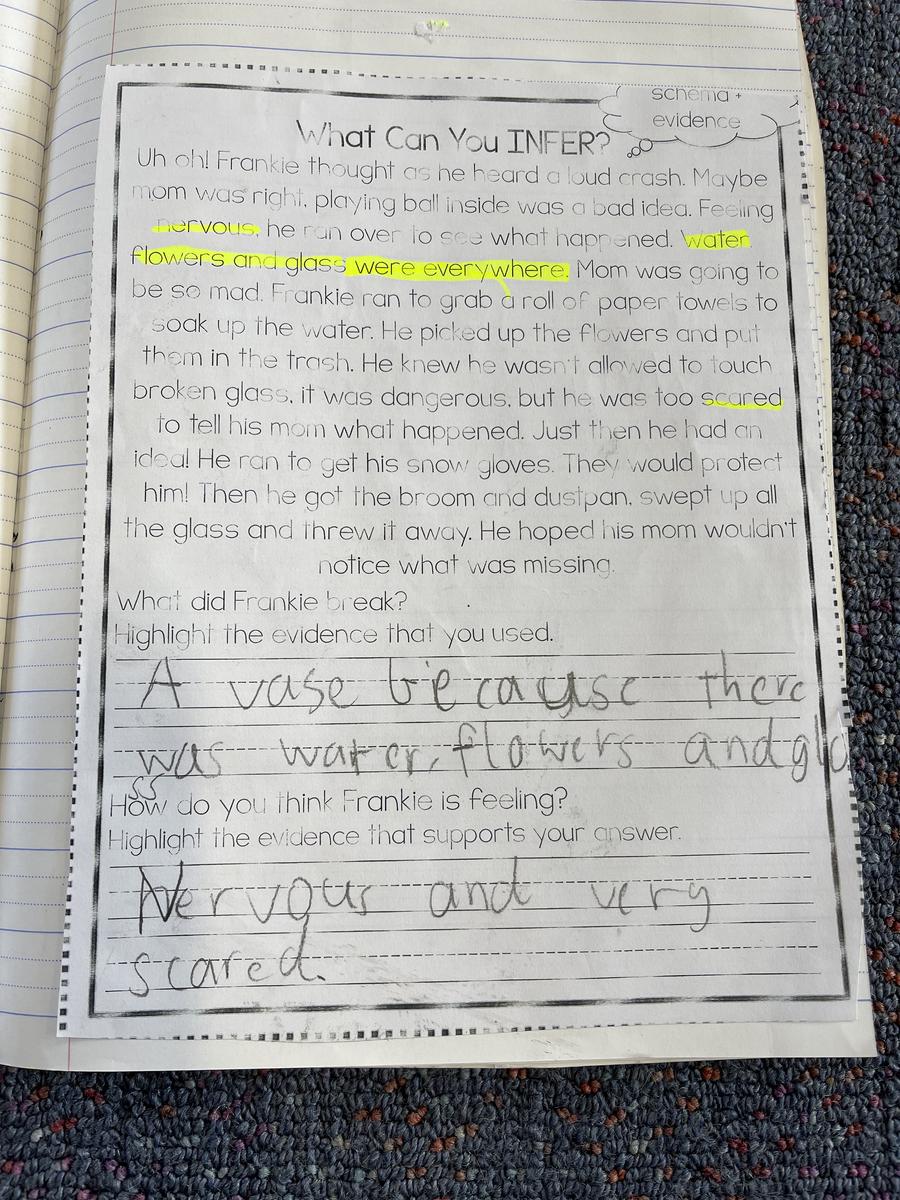 schema +
evidence
What Can You INFER?
Uh oh! Frankie thought as he heard a loud crash. Maybe
mom was right, playing ball inside was a bad idea. Feeling
nervous, he ran over to see what happened. Water,
flowers and glass were everywhere. Mom was going to
be so mad. Frankie ran to grab a roll of paper towels to
soak up the water. He picked up the flowers and put
them in the trash. He knew he wasn't allowed to touch
broken glass, it was dangerous, but he was too scared
to tell his mom what happened. Just then he had an
idea! He ran to get his snow gloves. They would protect
him! Then he got the broom and dustpan, swept up all
the glass and threw it away. He hoped his mom wouldn't
notice what was missing.
What did Frankie break?
Highlight the evidence that you used.
A vase because there
was water, flowers and gla
ss
How do you think Frankie is feeling?
Highlight the evidence that supports your answer.
Nervous and very
scared.